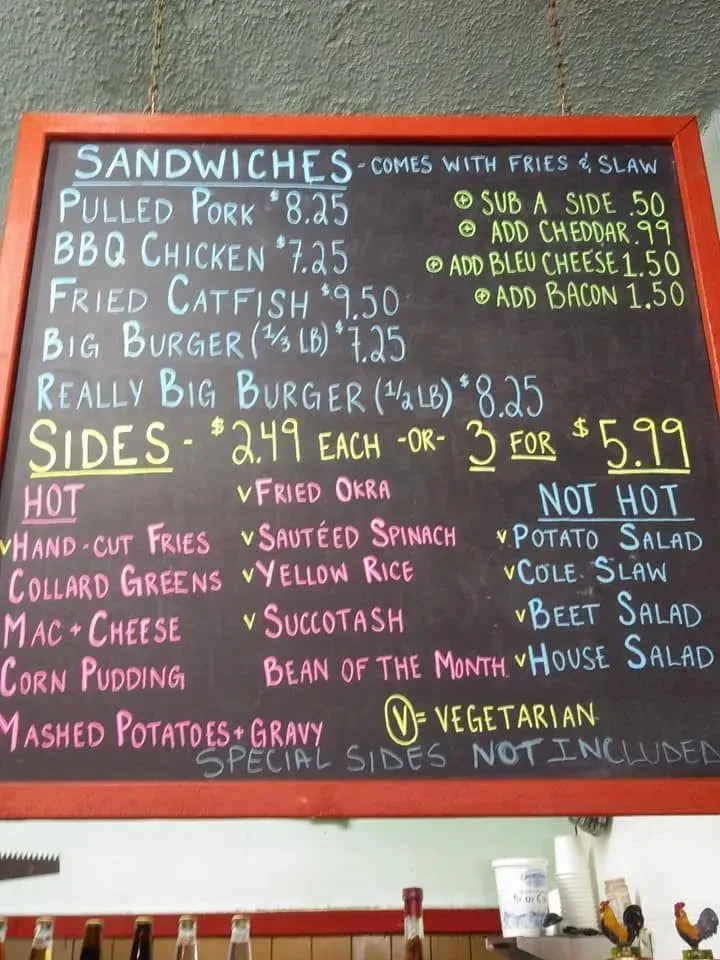 SANDWICHES - COMES WITH FRIES & SLAW
PULLED PORK $8.25
BBQ CHICKEN $7.25
FRIED CATFISH $9.50
BIG BURGER (1/3 LB) $7.25
REALLY BIG BURGER (1/2 LB) $8.25
⊕ SUB A SIDE .50
⊕ ADD CHEDDAR .99
⊕ ADD BLEU CHEESE 1.50
⊕ ADD BACON 1.50
SIDES - $2.49 EACH -OR- 3 FOR $5.99
HOT
V HAND-CUT FRIES
COLLARD GREENS
MAC + CHEESE
CORN PUDDING
MASHED POTATOES + GRAVY
V FRIED OKRA
V SAUTÉED SPINACH
V YELLOW RICE
V SUCCOTASH
BEAN OF THE MONTH
NOT HOT
V POTATO SALAD
V COLE SLAW
V BEET SALAD
V HOUSE SALAD
V = VEGETARIAN
SPECIAL SIDES NOT INCLUDED